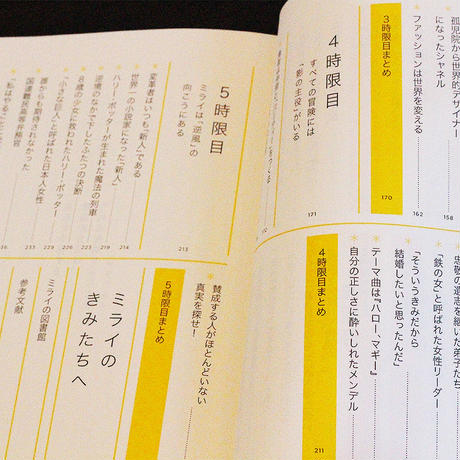 孤児院から世界的デザイナー
になったシャネル 158
ファッションは世界を変える 162
3時限目まとめ 170
4時限目
すべての冒険には
「影の主役」がいる 171
忠敬の遺志を継いだ弟子たち
「鉄の女」と呼ばれた女性リーダー
「そういうきみだから
結婚したいと思ったんだ」
テーマ曲は『ハロー、マギー!』
自分の正しさに酔いしれたメンデル
4時限目まとめ 211
5時限目
ミライは「逆風」の
向こうにある 213
変革者はいつも「新人」である
世界一の小説家になった「新人」 214
ハリー・ポッターが生まれた魔法の列車 219
逆境のなかで下したふたつの決断 223
8歳の少女に救われたハリー・ポッター 226
「小さな巨人」と呼ばれた日本人女性 229
誰からも期待されなかった
国連難民高等弁務官 233
「私はやることに
賛成する人がほとんどいない
真実を探せ!
5時限目まとめ
ミライの
きみたちへ
ミライの図書館
参考文献